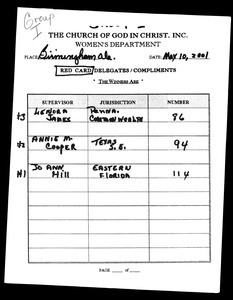 Group
I
THE CHURCH OF GOD IN CHRIST, INC.
WOMEN'S DEPARTMENT
PLACE: Birmingham Ala. DATE: May 10, 2001
RED CARD/DELEGATES/COMPLIMENTS
THE WINNERS ARE
SUPERVISOR JURISDICTION NUMBER
#3 LENORA JAMES PENNA. COMMONWEALTH 86
#2 ANNIE M. COOPER TEXAS S.E. 94
#1 JO ANN Hill EASTERN FLORIDA 114
PAGE OF